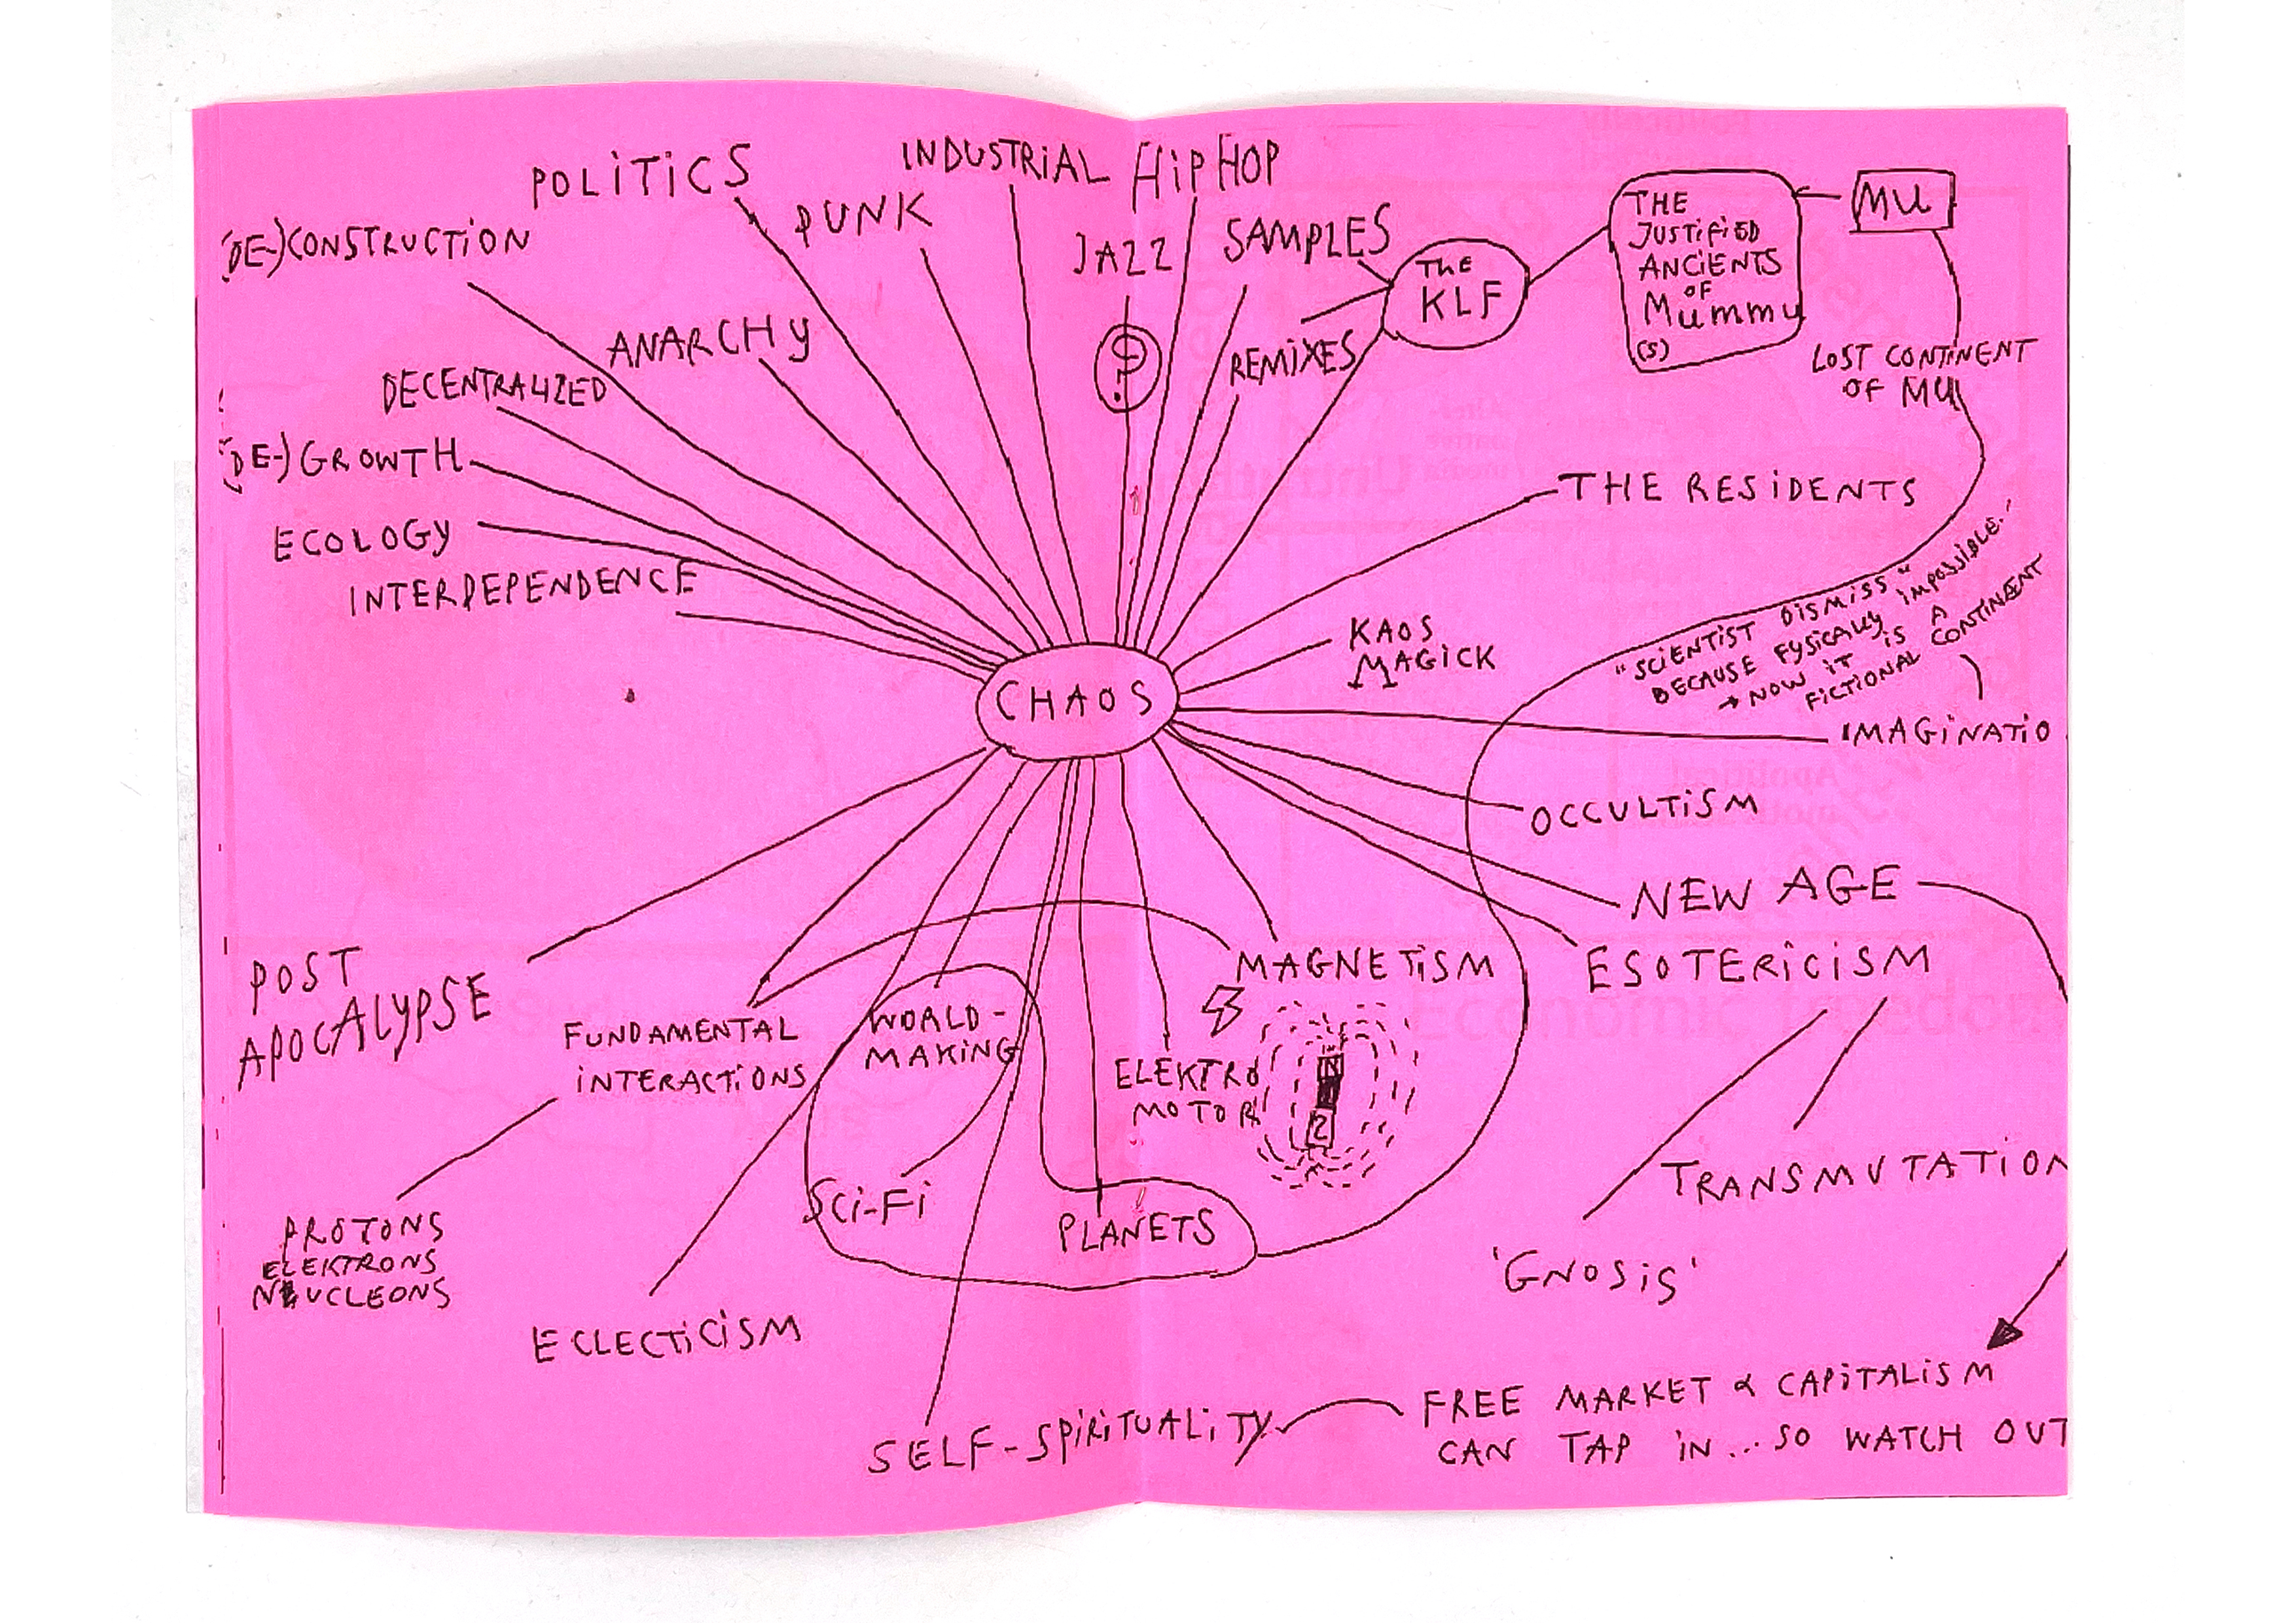 POLITICS
INDUSTRIAL
HIPHOP
PUNK
(DE-)CONSTRUCTION
JAZZ
SAMPLES
THE
KLF
THE
JUSTIFIED
ANCIENTS
OF
MUMMU
(S)
MU
LOST CONTINENT
OF MU
ANARCHY
REMIXES
DECENTRALIZED
(DE-)GROWTH
ECOLOGY
INTERDEPENDENCE
THE RESIDENTS
KAOS
MAGICK
CHAOS
"SCIENTIST DISMISS"
BECAUSE FYSICALLY IMPOSSIBLE.
→ NOW IT IS A
FICTIONAL CONTINENT
IMAGINATIO
OCCULTISM
NEW AGE
ESOTERICISM
MAGNETISM
POST
APOCALYPSE
FUNDAMENTAL
INTERACTIONS
WORLD-
MAKING
ELEKTRO
MOTOR
N
Z
SCI-FI
PLANETS
TRANSMUTATION
'GNOSIS'
PROTONS
ELEKTRONS
NEUCLEONS
ECLECTICISM
SELF-SPIRITUALITY
FREE MARKET & CAPITALISM
CAN TAP IN... SO WATCH OUT